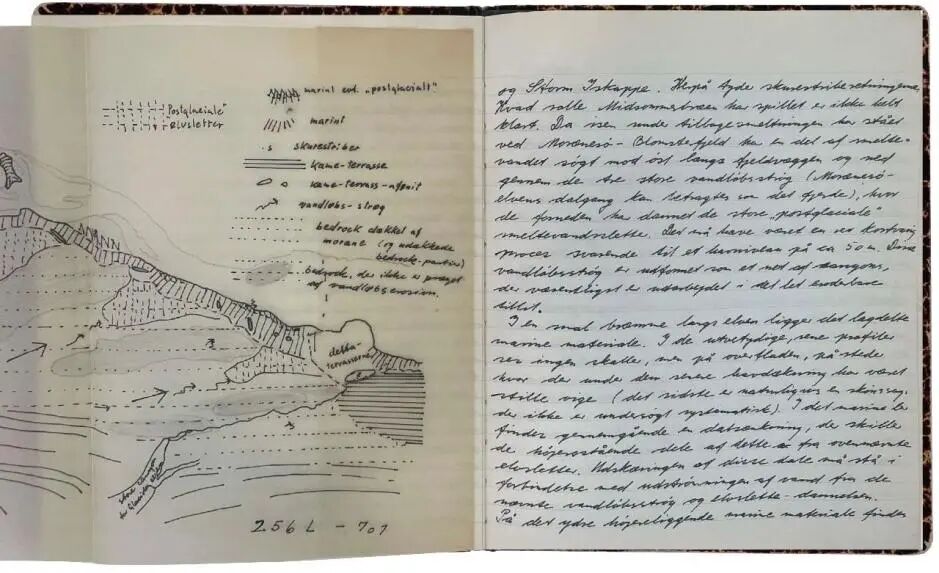 "Postglaciale"
elvsletter
marint evt. "postglacialt"
marint
skurestriber
kame-terrasse
kame-terrass-afsnit
vandløbs-strøg
bedrock dækket af
moræne (og udækkede
bedrock-partier)
bedrock, der ikke er præget
af vandløbserosion.
delta-
terrasserne
256 L - 707
og Storm Iskappe. Herpå tyder skurestriberetningerne.
Hvad rolle Midsommersøen har spillet er ikke helt
klart. Da isen under tilbagesmeltningen har stået
ved Morænesø - Blomsterfjeld har en del af smelte-
vandet søgt mod øst langs fjeldvæggen og ned
gennem de tre store vandløbsstrøg (Morænesø-
elvens dalgang kan betragtes som det fjerde), hvor
de forneden har dannet de store "postglaciale"
smeltevandsslette. Det må have været en ret kortvarig
proces svarende til et havniveau på ca 50 m. Disse
vandløbsstrøg er udformet som et net af
der væsentligst er udarbejdet i det let eroderbare
tillit.
I en smal bræmme langs elven ligger det lagdelte
marine materiale. I de utvetydige, rene profiler
ses ingen skaller, men på overfladen, på steder
hvor der under den senere havdækning har været
stille vige (det sidste er naturligvis en skønssag,
der ikke er undersøgt systematisk). I det marine ler
findes gennemgående en dalsænkning, der skiller
de højereostående dele af dette fra ovennævnte
elvslette. Udskæringen af disse dale må stå i
forbindelse med udstrømningen af vand fra de
nævnte vandløbsstrøg og elvslette-dannelsen.
På det ydre højereliggende marine materiale findes